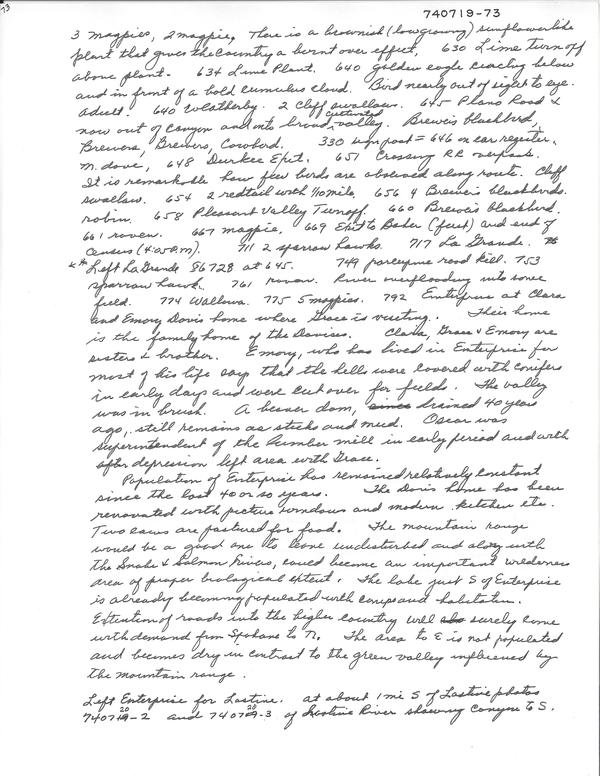 73
740719-73
3 magpies, 2 magpie. There is a brownish (low growing) sunflowerlike
plant that gives the country a burnt over effect. 630 Lime turn off
above plant. 634 Lime Plant. 640 Golden eagle circling below
and in front of a bold cumulus cloud. Bird nearly out of sight to eye.
adult. 640 Weatherby. 2 Cliff swallows. 645 Plano Road &
now out of canyon and into broad cultivated valley. Brewers blackbird,
Brewers, Brewers, Cowbird. 330 sign post = 646 on car register.
M. dove, 648 Durkee Exit. 651 Crossing RR overpass.
It is remarkable how few birds are observed along route. Cliff
swallow. 654 2 redtail with 1/10 mile, 656 4 Brewers blackbirds.
robin. 658 Pleasant Valley Turnoff. 660 Brewers blackbird.
661 raven. 667 magpie, 669 Exit to Baker (first) and end of
census (4:05 P.M.). 711 2 sparrow hawks. 717 La Grande.
** Left La Grande 86728 at 645. 749 porcupine road kill. 753
sparrow hawk. 761 raven. River overflooding into some
field. 774 Wallowa. 775 5 magpies. 792 Enterprise at Clara
and Emory Davis home where Grace is visiting. Their home
is the family home of the Davises. Clara, Grace & Emory are
sisters & brother. Emory, who has lived in Enterprise for
most of his life says that the hills were covered with conifers
in early days and were cut over for fields. The valley
was in brush. A beaver dam, since drained 40 years
ago, still remains as sticks and mud. Oscar was
superintendent of the lumber mill in early period and with
after depression left area with Grace.
Population of Enterprise has remained relatively constant
since the last 40 or so years. The Davis home has been
renovated with picture windows and modern kitchen etc.
Two cows are pastured for food. The mountain range
would be a good one to leave undisturbed and along with
the Snake & Salmon Rivers, could become an important wilderness
area of proper biological extent. The lake just S of Enterprise
is already becoming populated with camps and habitation.
Extention of roads into the higher country will surely come
with demand from Spokane to N. The area to E is not populated
and becomes dry in contrast to the green valley influenced by
the mountain range.
Left Enterprise for Lostine. at about 1 mi S of Lostine photos
740720-2 and 740720-3 of Lostine River showing Canyon to S.